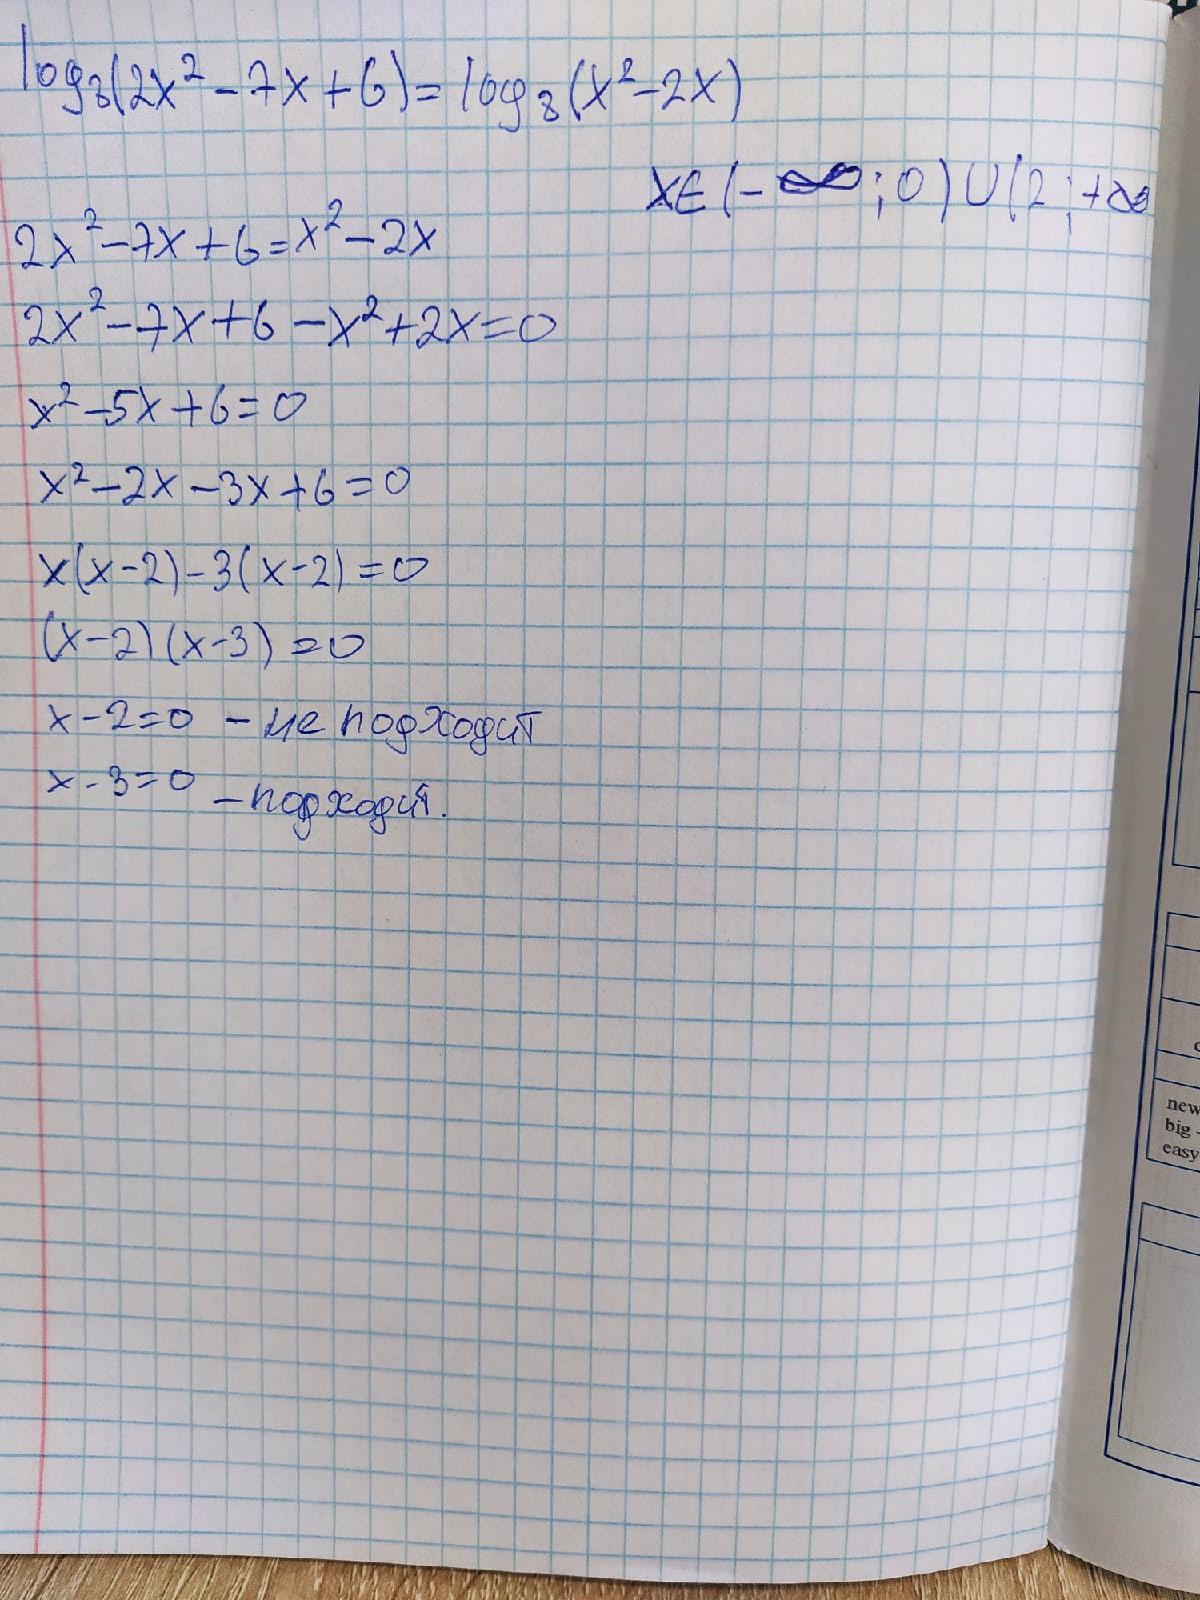 log₃(2x² - 7x + 6) = log₃(x² - 2x)
x∈(-∞; 0) ∪ (2; +∞
2x² - 7x + 6 = x² - 2x
2x² - 7x + 6 - x² + 2x = 0
x² - 5x + 6 = 0
x² - 2x - 3x + 6 = 0
x(x - 2) - 3(x - 2) = 0
(x - 2)(x - 3) = 0
x - 2 = 0 - не подходит
x - 3 = 0 - подходит.
new
big -
easy